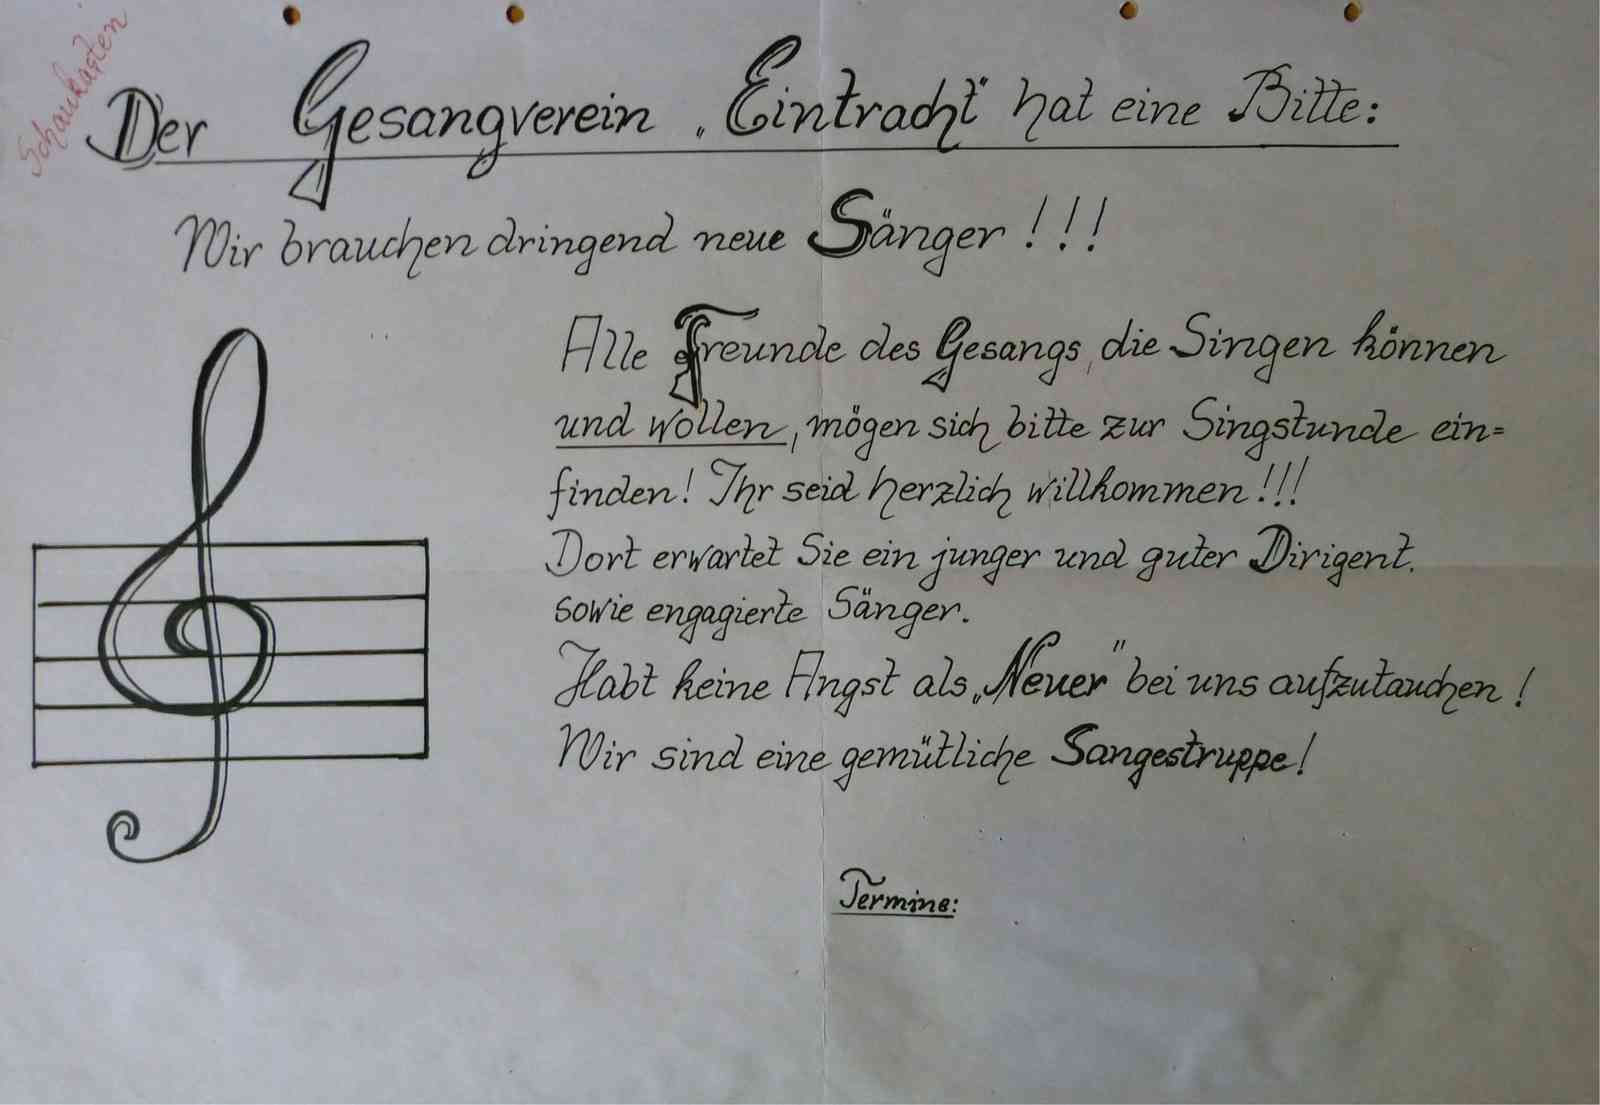 Schaukasten
Der Gesangverein „Eintracht" hat eine Bitte:
Wir brauchen dringend neue Sänger!!!
Alle Freunde des Gesangs, die Singen können
und wollen, mögen sich bitte zur Singstunde ein=
finden! Ihr seid herzlich willkommen!!!
Dort erwartet Sie ein junger und guter Dirigent.
sowie engagierte Sänger.
Habt keine Angst als „Neuer" bei uns aufzutauchen!
Wir sind eine gemütliche Sangestruppe!
Termine: